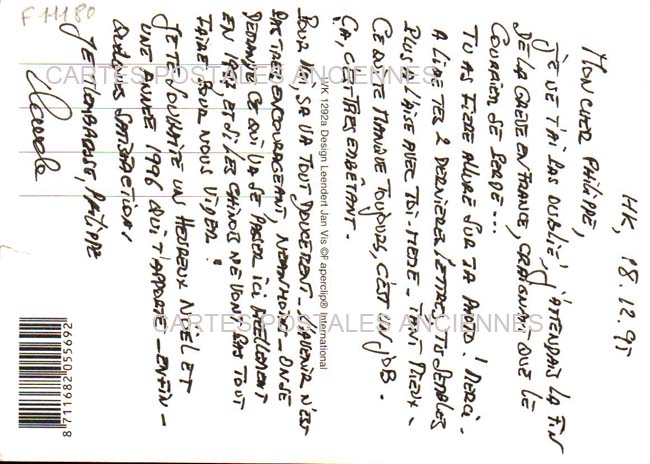 HK, 18.12.95
MON CHER PHILIPPE,
JE NE T'AI PAS OUBLIÉ, J'ATTENDAIS LA FIN
DE LA GREVE EN FRANCE, CRAIGNANT QUE LE
COURRIER SE PERDE...
TU AS FIERE ALLURE SUR TA PHOTO! MERCI.
A LIRE TES 2 DERNIERES LETTRES, TU SEMBLES
PLUS A L'AISE AVEC TOI-MEME. TANT MIEUX.
CE QUI TE MANQUE TOUJOURS, C'EST UN JOB.
ÇA, C'EST TRES EMBÊTANT.
POUR MOI, ÇA VA TOUT DOUCEMENT. L'AVENIR N'EST
PAS TRES ENCOURAGEANT, NEANMOINS. ON SE
DEMANDE CE QU'IL VA SE PASSER ICI REELLEMENT
EN 1997, ET SI LES CHINOIS NE VONT PAS TOUT
FAIRE POUR NOUS VIDER!
JE TE SOUHAITE UN HEUREUX NOËL ET
UNE ANNEE 1996 QUI T'APPORTE - ENFIN -
QUELQUES SATISFACTIONS
JE T'EMBRASSE, PHILIPPE
F11180
CARTES POSTALES ANCIENNES
CARTES POSTALES ANCIENNES
WK 1292a Design Leendert Jan Vis ©Paperclip® International
8 711682 055692